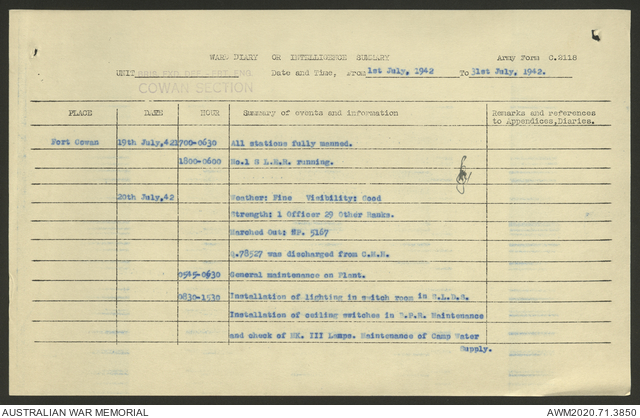 WAR DIARY OR INTELLIGENCE SUMMARY Army Form C.2118
UNIT BRIS. FXD DEF. FRT ENG. Date and Time, From 1st July, 1942 To 31st July, 1942.
COWAN SECTION
PLACE DATE HOUR Summary of events and information Remarks and references
to Appendices, Diaries.
Fort Cowan 19th July,42 1700-0630 All stations fully manned.
1800-0600 No.1 S L.E.R. running.
20th July,42 Weather: Fine Visibility: Good
Strength: 1 Officer 29 Other Ranks.
Marched Out: 5167
Q.78527 was discharged from C.M.H.
0545-0630 General maintenance on Plant.
0830-1530 Installation of lighting in switch room in
Installation of ceiling switches in Maintenance
and check of MK. III Lamps. Maintenance of Camp Water
Supply.
AUSTRALIAN WAR MEMORIAL AWM2020.71.3850